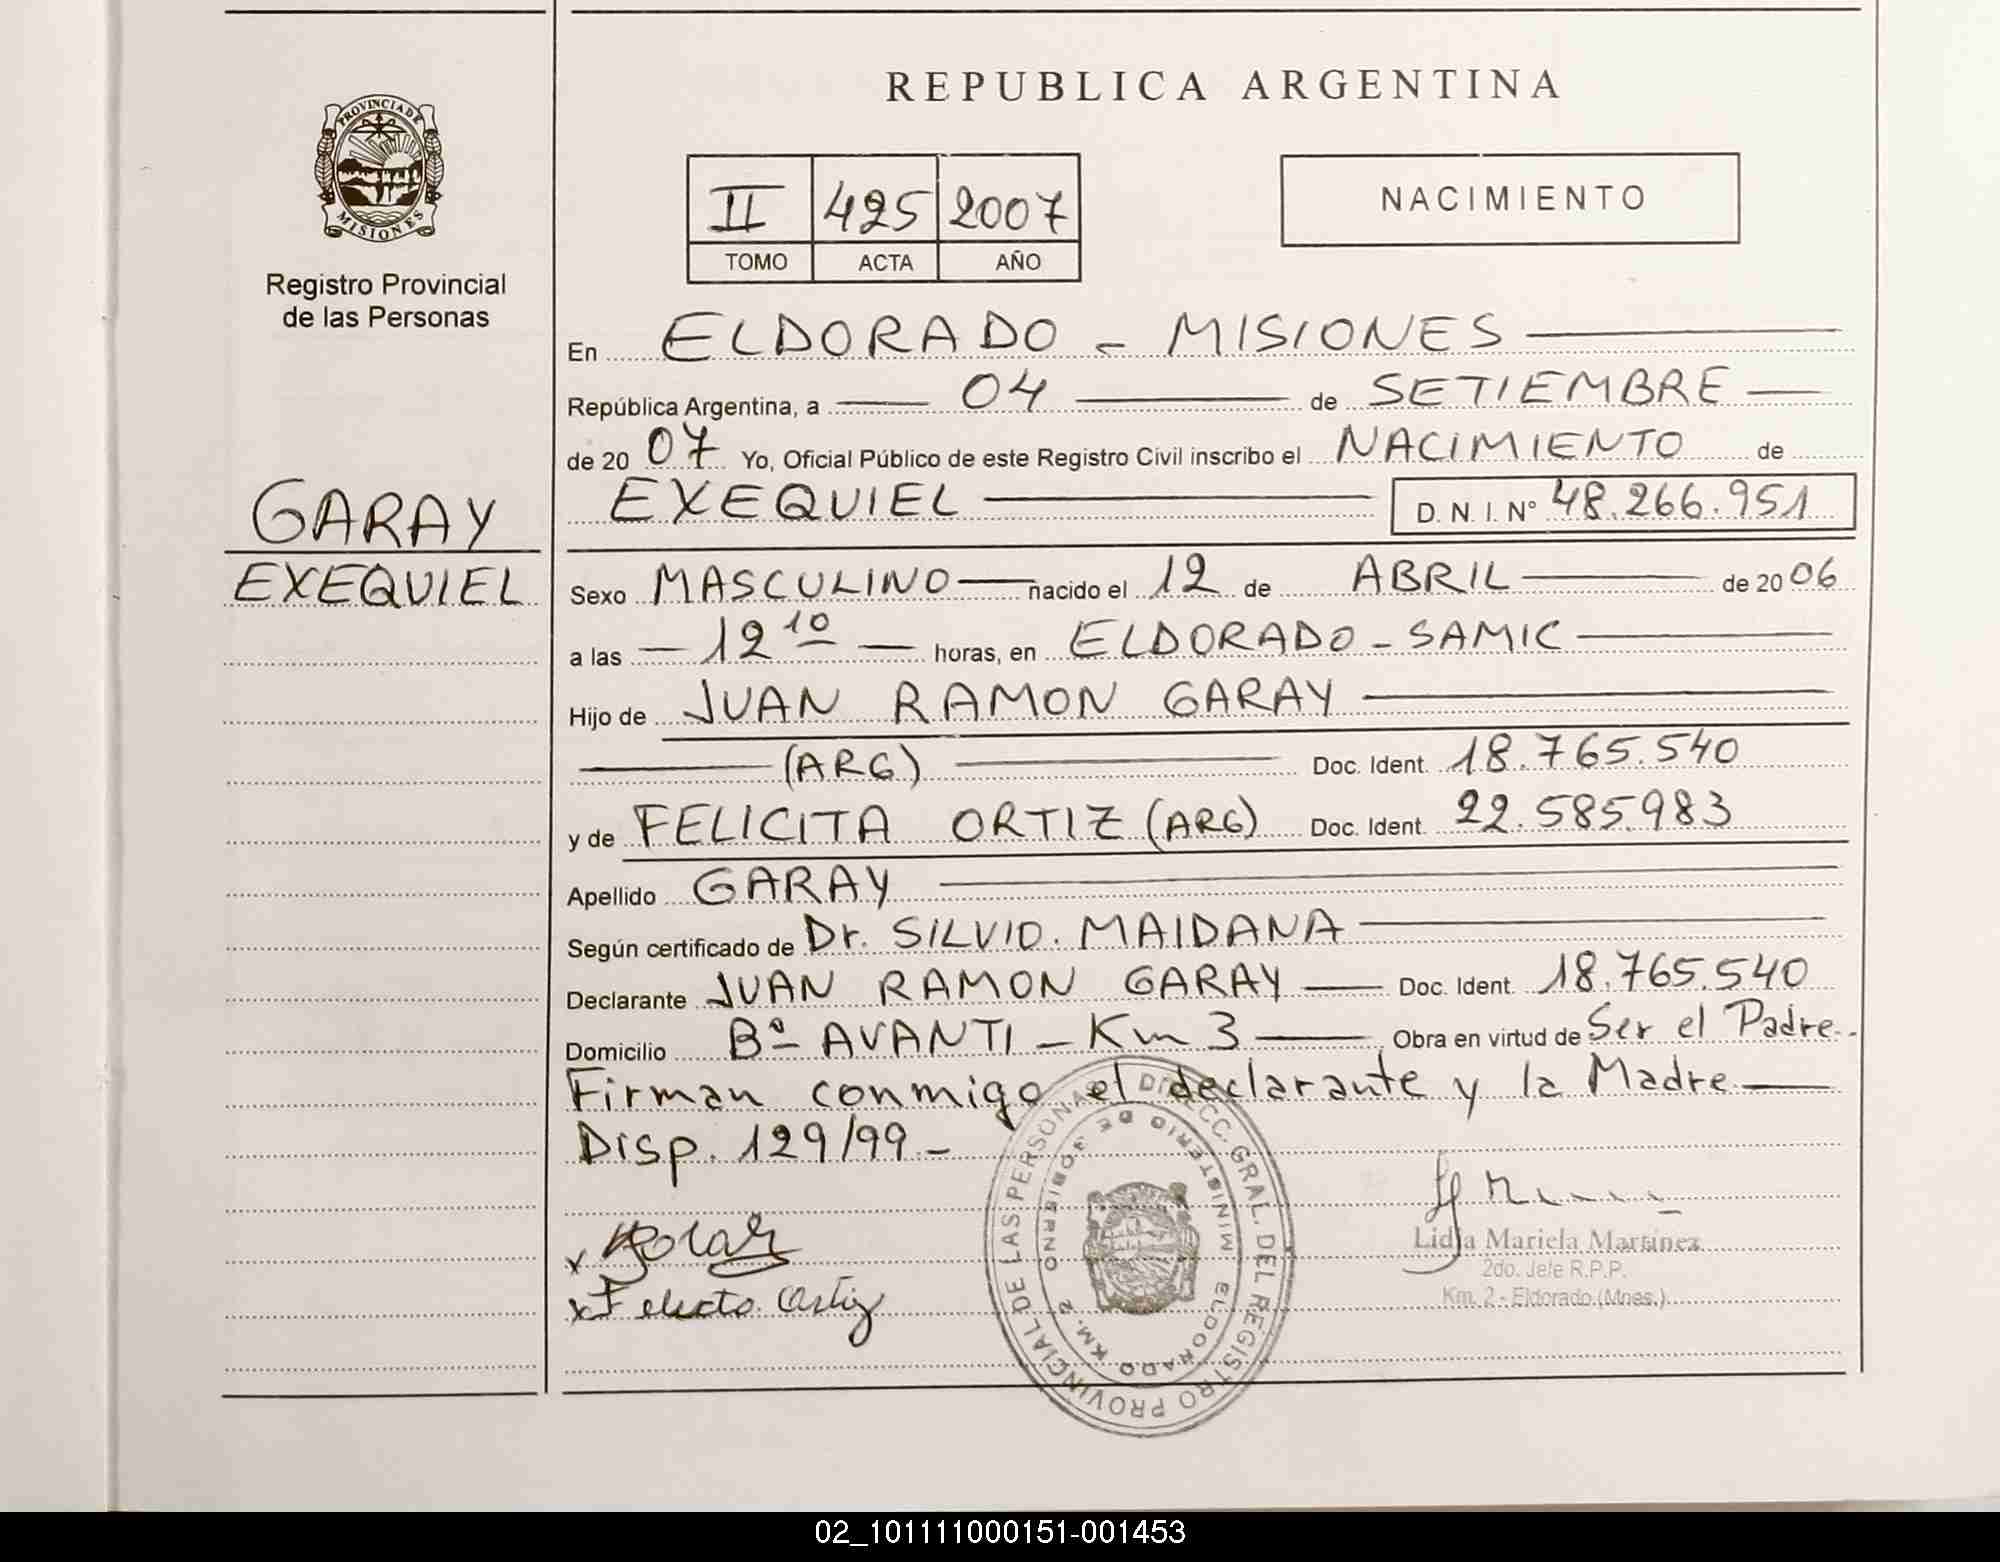 REPUBLICA ARGENTINA
PROVINCIA DE
MISIONES
Registro Provincial
de las Personas
II 425 2007
TOMO ACTA AÑO
NACIMIENTO
GARAY
EXEQUIEL
En ELDORADO - MISIONES
República Argentina, a 04 de SETIEMBRE
de 2007 Yo, Oficial Público de este Registro Civil inscribo el NACIMIENTO de
EXEQUIEL D. N. I. Nº 48.266.951
Sexo MASCULINO nacido el 12 de ABRIL de 2006
a las 12 10 horas, en ELDORADO - SAMIC
Hijo de JUAN RAMON GARAY
(ARG) Doc. Ident. 18.765.540
y de FELICITA ORTIZ (ARG) Doc. Ident. 22.585.983
Apellido GARAY
Según certificado de Dr. SILVIO. MAIDANA
Declarante JUAN RAMON GARAY Doc. Ident. 18.765.540
Domicilio Bº AVANTI - Km 3 Obra en virtud de Ser el Padre.
Firman conmigo el declarante y la Madre
Disp. 129/99.-
DIRECC. GRAL. DEL REGISTRO PROVINCIAL DE LAS PERSONAS
MINISTERIO DE GOBIERNO
ELDORADO KM. 2
Lidia Mariela Martinez
2do. Jefe R.P.P.
Km. 2 - Eldorado (Mnes.)
02_101111000151-001453